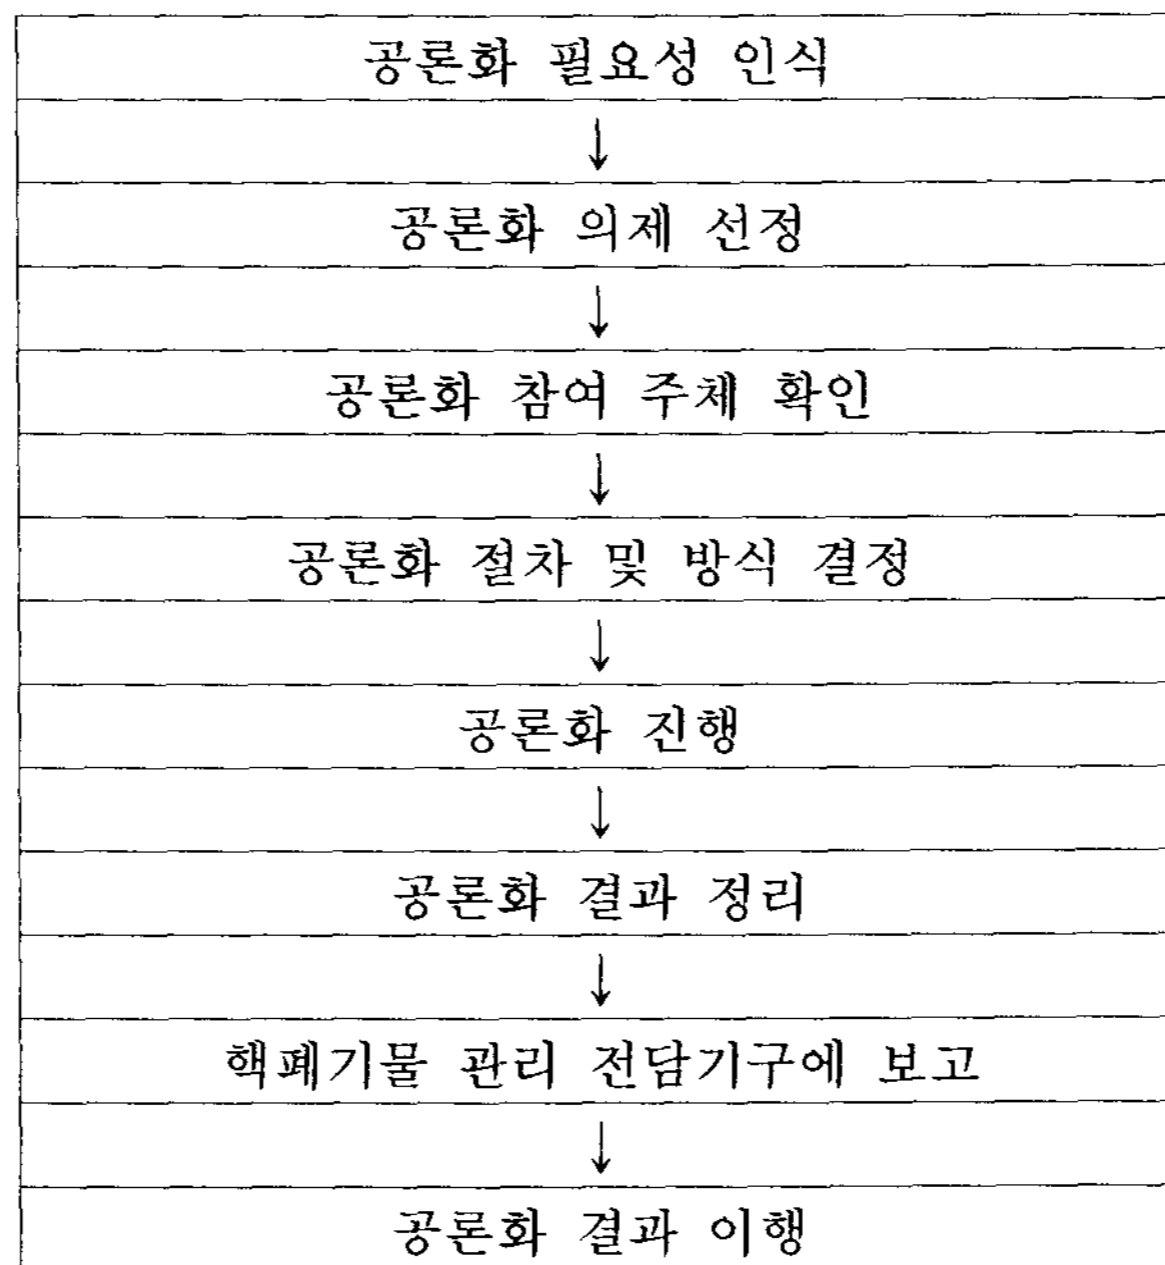 공론화 필요성 인식
↓
공론화 의제 선정
↓
공론화 참여 주체 확인
↓
공론화 절차 및 방식 결정
↓
공론화 진행
↓
공론화 결과 정리
↓
핵폐기물 관리 전담기구에 보고
↓
공론화 결과 이행